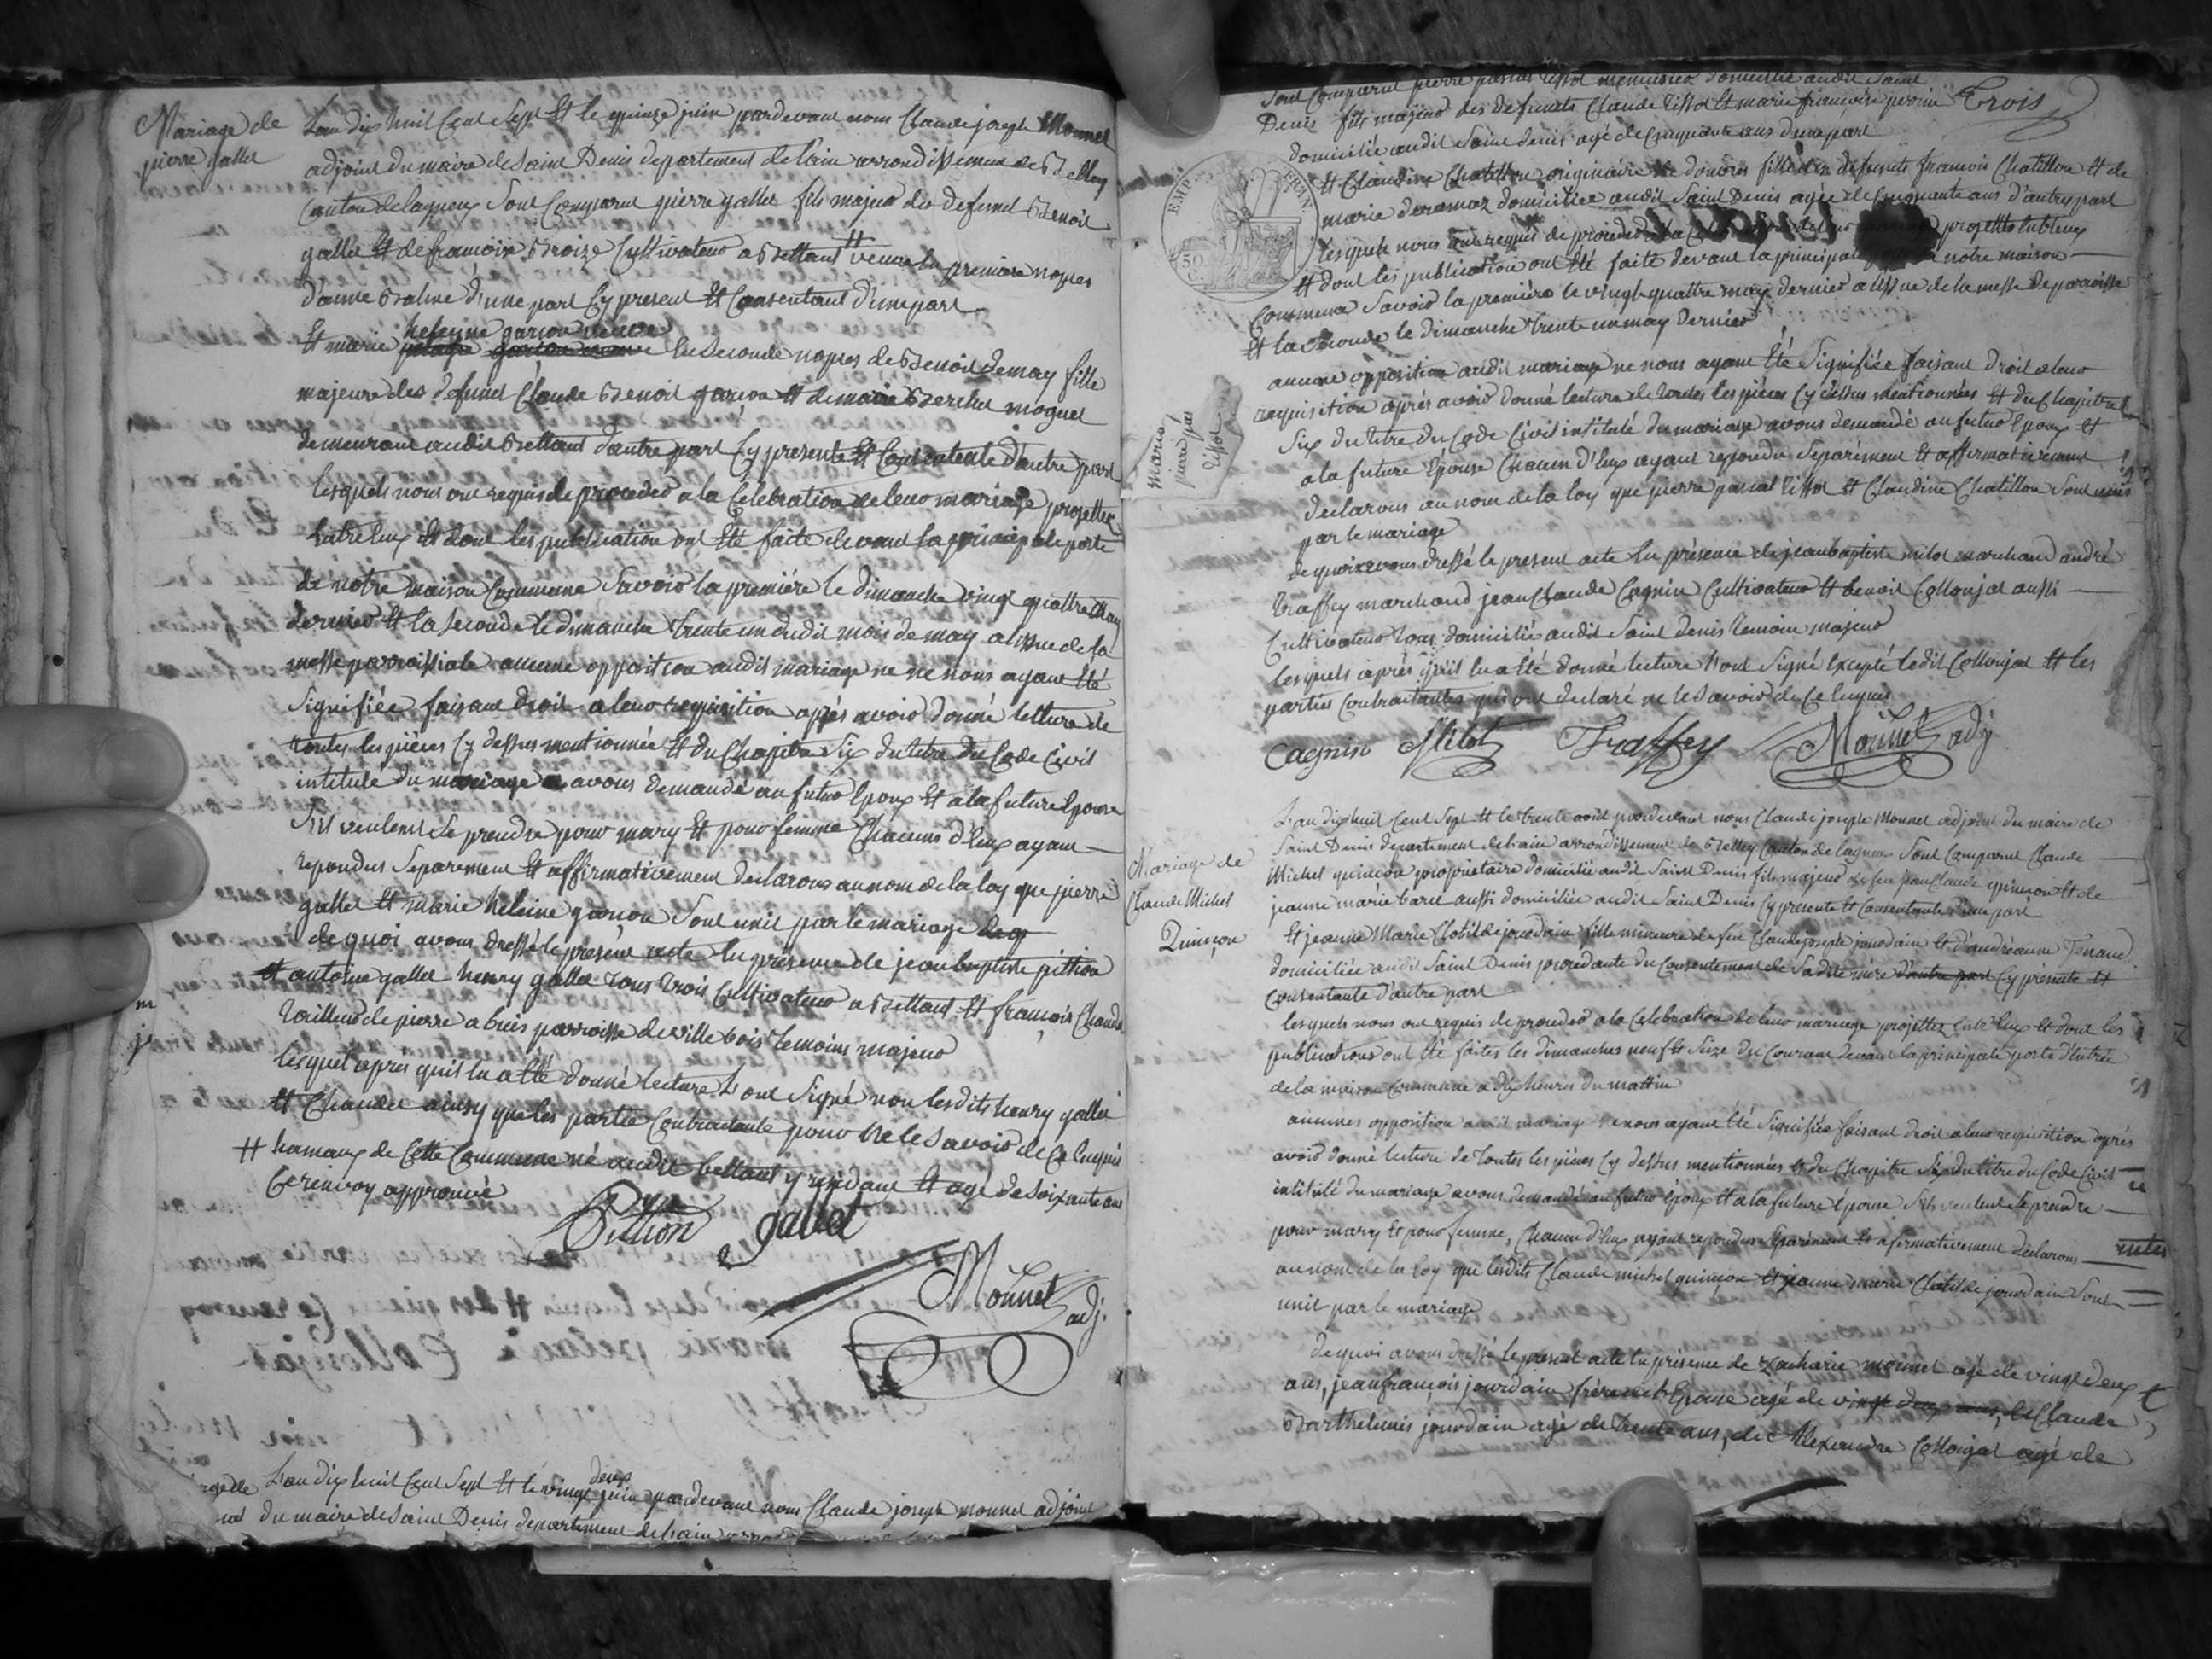 Mariage de
pierre gallet
L'an dix huit Cent Sept Et le quinze juin pardevant nous Claude joseph Monnet
adjoint du maire de Saint Denis departement de l'ain arrondissement de Belley
Canton de lagneux Sont Comparut pierre gallet fils majeur des defunct Benoit
gallet Et de francoise Broize Cultivateur a Bettant # veuve En premiere nopces
d'anne Baline d'une part Cy present Et Consentant d'une part
heleyne garcon veuve
Et marie En Seconde nopces de Benoit Demay fille
majeure des defunct Claude Benoit garcon Et de marie Berchet moquet
demeurant audit Bettant d'autre part Cy presente Et Consentente d'autre part
lesquels nous ont requis de proceder a la Celebration de leur mariage projettez
Entre Eux Et dont les publication ont Eté faite devant la principale porte
de notre maison Commune Savoir la premiére le dimanche vingt quattre May
dernier Et la Seconde le dimanche trente un dudit mois de may a lissue de la
messe parroissiale aucune opposition audit mariage ne ne nous ayant Eté
Signifiée faisant droit a leur requisition après avoir donné lecture de
toutes les pièces Cy dessus mentionnée Et du Chapitre Six du titre du Code Civil
intitule du mariage avons demandé au futur Epoux Et a la future Epouse
S'ils veulent Se prendre pour mary Et pour femme Chacuns d'Eux ayant
repondus Separement Et affirmativement declarons au nom de la loy que pierre
gallet Et marie heleine garcon Sont unit par le mariage
de quoi avons dressé le present acte En présence de jean baptiste pittion
Et antoine gallet henry gallet tous trois Cultivateur a Bettant Et françois Chaudet
tailleur de pierre a buis parroisse de ville bois temoins majeur
lesquel après quil En a Eté donné lecture L'ont Signé non lesdits henry gallet
Et Chaudet ainsy que les partie Contractante pour ne le Savoir de Ce Enquis
# hamaux de Cette Commune né audit bettant y residant Et agé de Soixante ans
Ce renvoy approuvé
Pittion gallet
Monnet
adj.
deux
L'an dix huit Cent Sept Et le vingt juin pardevant nous Claude joseph monnet adjoint
du maire de Saint Denis departement de l'ain
Sont Comparut pierre pascal tissot menuisier domicilié audit Saint
Trois
Denis fils majeur des defuncts Claude tissot Et marie francoise perrin
domicilié audit Saint denis agé de Cinquante ans d'une part
EMP
50
C.
Et Claudine Chatillon originaire de fille des defuncts francois Chatillon Et de
marie domiciliée audit Saint Denis agée de Cinquante ans d'autre part
lesquels nous ont requis de proceder a la projettés Entre Eux
Et dont les publication ont Eté faite devant la principale notre maison
Commune Savoir la premiére le vingt quattre may dernier a lissue de la messe de parroisse
Et la Seconde le dimanche trente un may dernier
aucune opposition audit mariage ne nous ayant Eté Signifiée faisant droit a leur
requisition après avoir donné lecture de toutes les pièces Cy dessus mentionnées Et du Chapitre
Six du titre du Code Civil intitulé du mariage avons demandé au futur Epoux Et
mario
pierre
tissot
a la future Epouse Chacun d'Eux ayant repondu Separément Et affirmativement
declarons au nom de la loy que pierre pascal tissot Et Claudine Chatillon Sont unis
par le mariage
de quoi avons dressé le present acte En présence de jean baptiste milot marchand andré
traffey marchand jean Claude Cagnin Cultivateur Et benoit Collonjat aussi
Cultivateur tous domicilié audit Saint denis temoin majeur
lesquels après quil En a Eté donné lecture L'ont Signé Excepté ledit Collonjat Et les
parties Contractantes qui ont declaré ne le Savoir de Ce Enquis
Cagnin Milot Traffey Monnet adj
L'an dix huit Cent Sept Et le trente aout pardevant nous Claude joseph Monnet adjoint du maire de
Saint Denis departement de l'ain arrondissement de Belley Canton de lagneux Sont Comparut Claude
Mariage de
Claude Michel
Quinçon
Michel quinçon proprietaire domicilié audit Saint Denis fils majeur de feu jean Claude quincon Et de
jeanne marie baret aussi domiciliée audit Saint Denis Cy presente Et Consentante d'une part
Et jeanne Marie Clotilde jourdain fille mineure de feu Claude joseph jourdain Et d'andréanne
domiciliée audit Saint Denis procedante du Consentement de Sadite mère d'autre part Cy presente Et
Consentante d'autre part
lesquels nous ont requis de proceder a la Celebration de leur mariage projettez Entr'Eux Et dont les
publications ont Eté faites les dimanches neuf Et Seize du Courant devant la principale porte d'Entrée
de la maison Commune a dix heures du mattin
aucunes opposition audit mariage ne nous ayant Eté Signifiée faisant droit a leur requisition après
avoir donné lecture de toutes les pièces Cy dessus mentionnées Et du Chapitre Six du titre du Code Civil
intitulé du mariage avons demandé au futur époux Et a la future Epouse S'ils veulent Se prendre
pour mary Et pour femme, Chacun d'Eux ayant repondu Separément Et afirmativement déclarons
au nom de la loy que lesdits Claude michel quinçon Et jeanne marie Clotilde jourdain Sont
unit par le mariage
de quoi avons dressé le present acte En présence de Zacharie monnet agé de vingt deux
ans, jean françois jourdain frère de l'Epouse agé de vingt deux ans, de Claude
Barthelemis jourdain agé de trente ans, de Alexandre Collonjat agé de